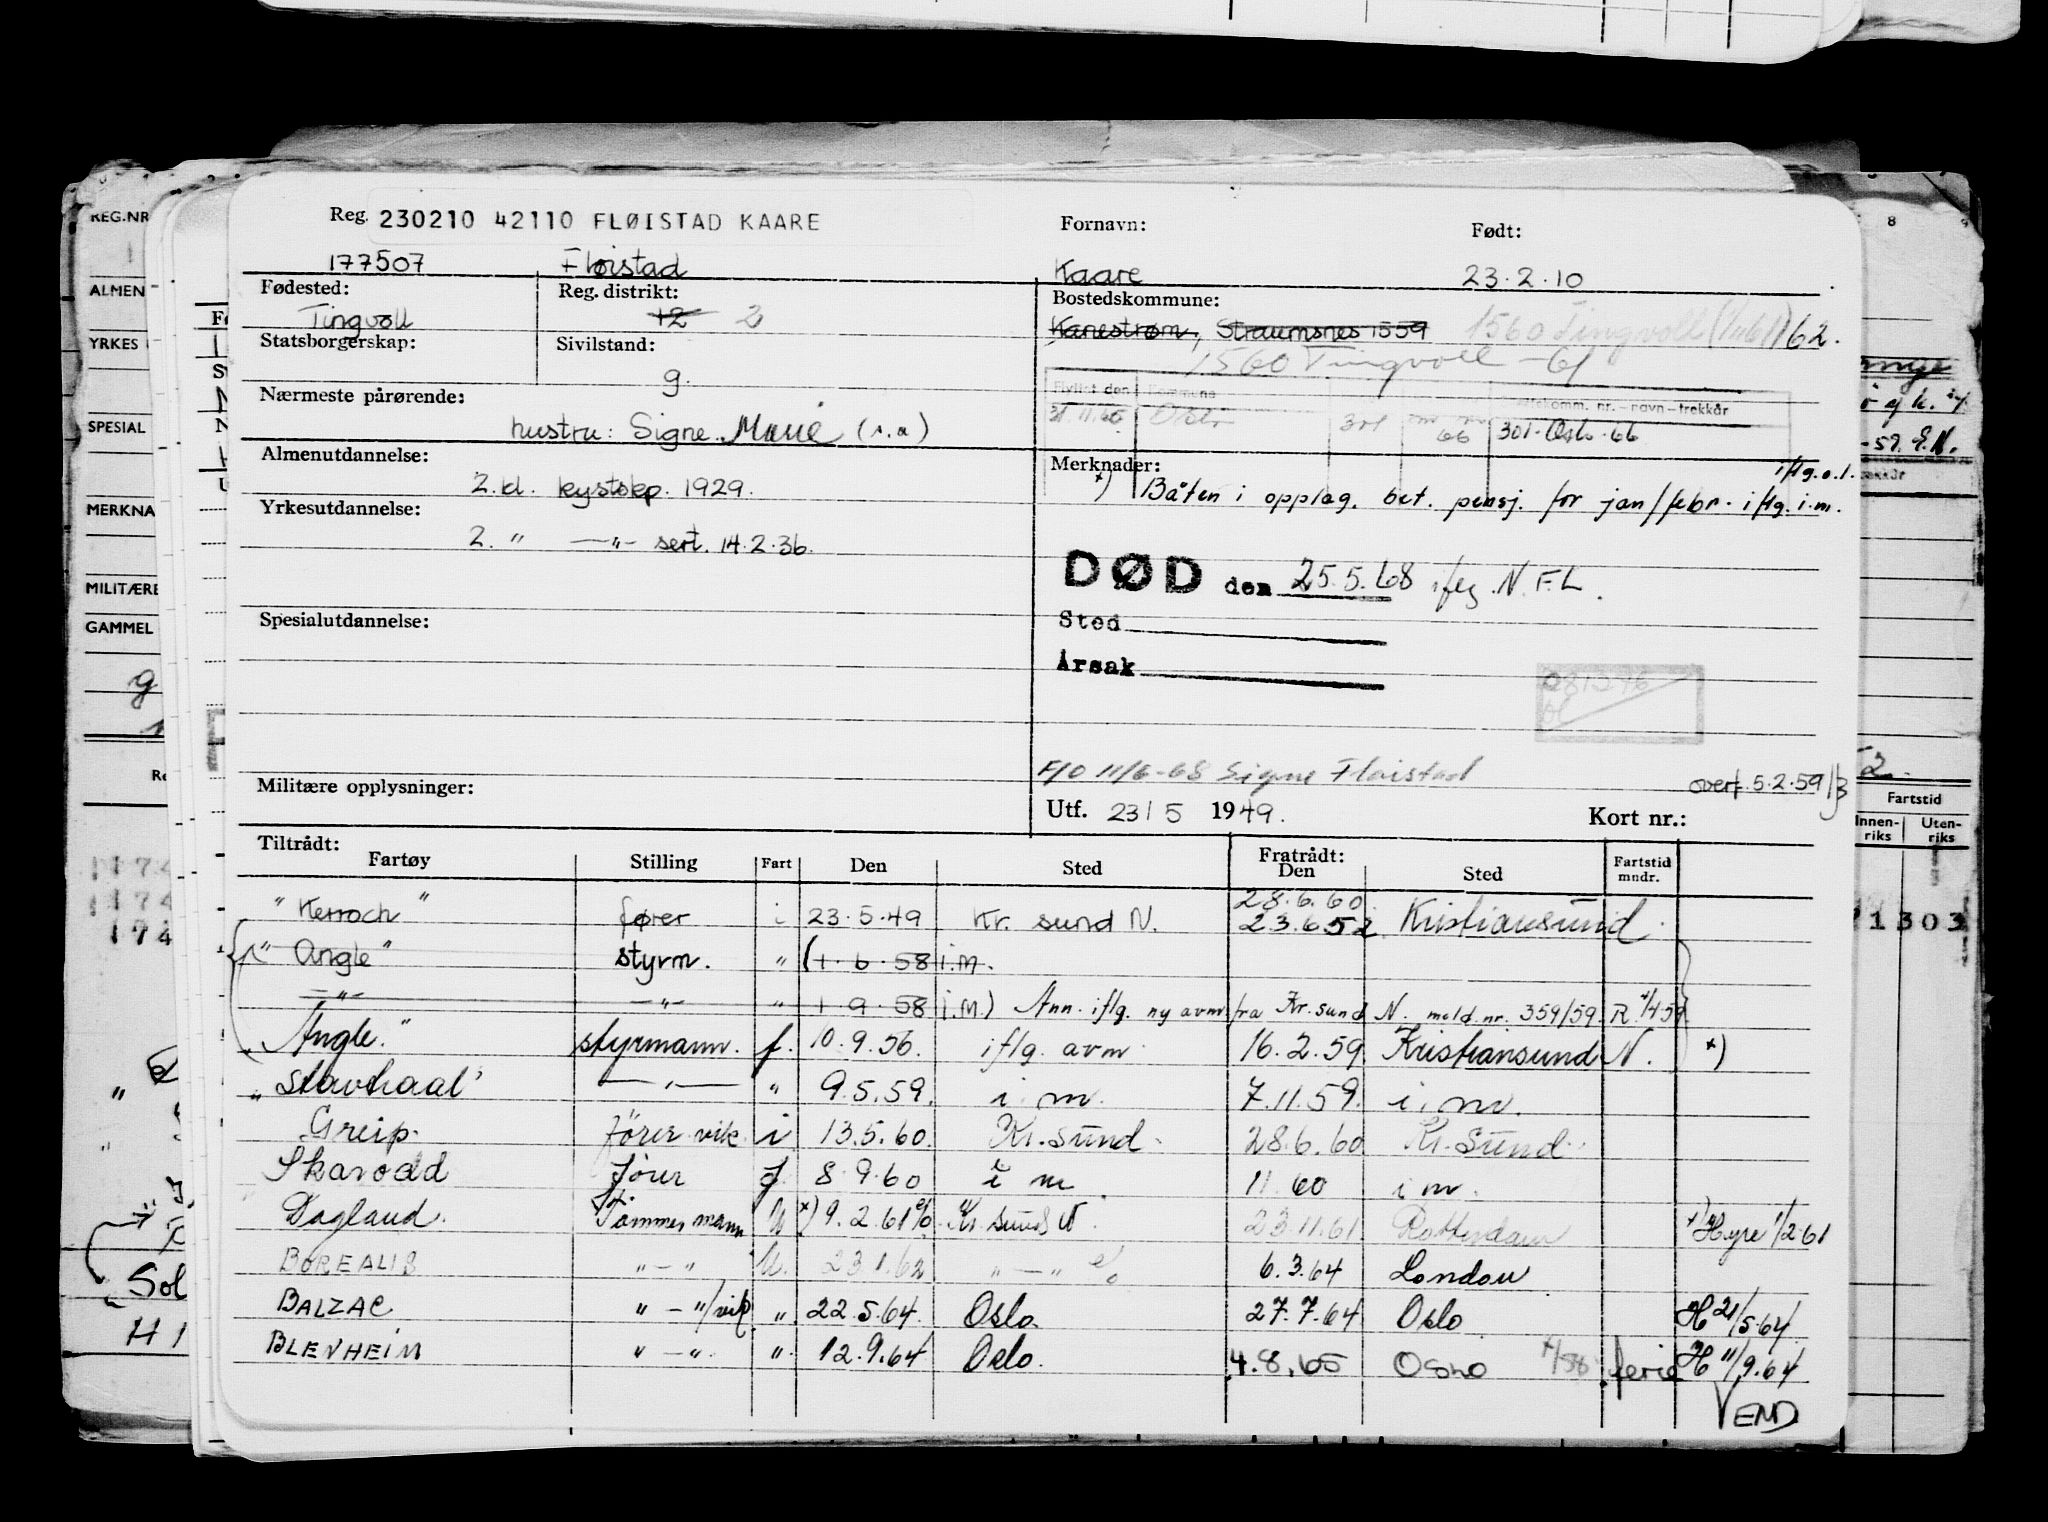 Reg. 230210 42110 FLØISTAD KAARE Fornavn: Født:
177507 Fløistad Kaare 23.2.10
Fødested: Reg. distrikt: Bostedskommune:
Tingvoll 12 2 Kanestrøm, Straumsnes 1559 1560 Tingvoll (1/1 61) 62.
Statsborgerskap: Sivilstand: 1560 Tingvoll -61
g.
Flyttet den Kommune Skattekomm. nr.-navn-trekkår
31.11.65 Oslo 301 66 301-Oslo-66
Nærmeste pårørende:
hustru: Signe Marie (s.a)
Almenutdannelse: Merknader: iflg.o.l.
2. kl. kystskp. 1929. x) Båten i opplag. bet. pensj. for jan/febr. iflg. i.m.
Yrkesutdannelse:
2. " —"— sert. 14.2.36.
DØD den 25.5.68 iflg. N.F.L.
Sted
Spesialutdannelse:
Årsak
081396
F/O 11/6-68 Signe Fløistad
overf. 5.2.59/3
Militære opplysninger: Utf. 23/5 1949. Kort nr.:
Tiltrådt: Fratrådt:
Fartøy Stilling Fart Den Sted Den Sted Fartstid mndr.
28.6.60.
" Kerroch " fører i 23.5.49 Kr. sund N. 23.6.52 Kristiansund
" Angle " styrm. " (1.6.58 i.m.
—"— —"— " 1.9.58 i.m.) Ann. iflg. ny avm fra Kr.sund N. meld.nr. 359/59. R. 4/4 59
" Angle. " styrmann. f. 10.9.56. iflg. avm 16.2.59. Kristiansund N. x)
" Stavhaal " —"— " 9.5.59. i.m. 7.11.59. i.m.
Greip. fører vik. i 13.5.60. Kr.sund. 28.6.60 Kr.Sund.
Skarodd fører f. 8.9.60 i m 11.60 i m.
Dagland. Tømmermann U x) 9.2.61 % Kr. sund N. 23.11.61. Rotterdam x) Hyre 1/2-61
BOREALIS "—" U. 23.1.62 "—" % 6.3.64 London
BALZAC "—"/vik " 22.5.64. Oslo. 27.7.64 Oslo H 21/5.64.
BLENHEIM "—". " 12.9.64 Oslo. 4.8.65 OSLO ferie H 11/9.64
VEND
REG.NR
ALMEN
YRKES
SPECIAL
MERKNA
MILITÆRE
GAMMEL
8
Fartstid
Innen-riks Uten-riks
1303